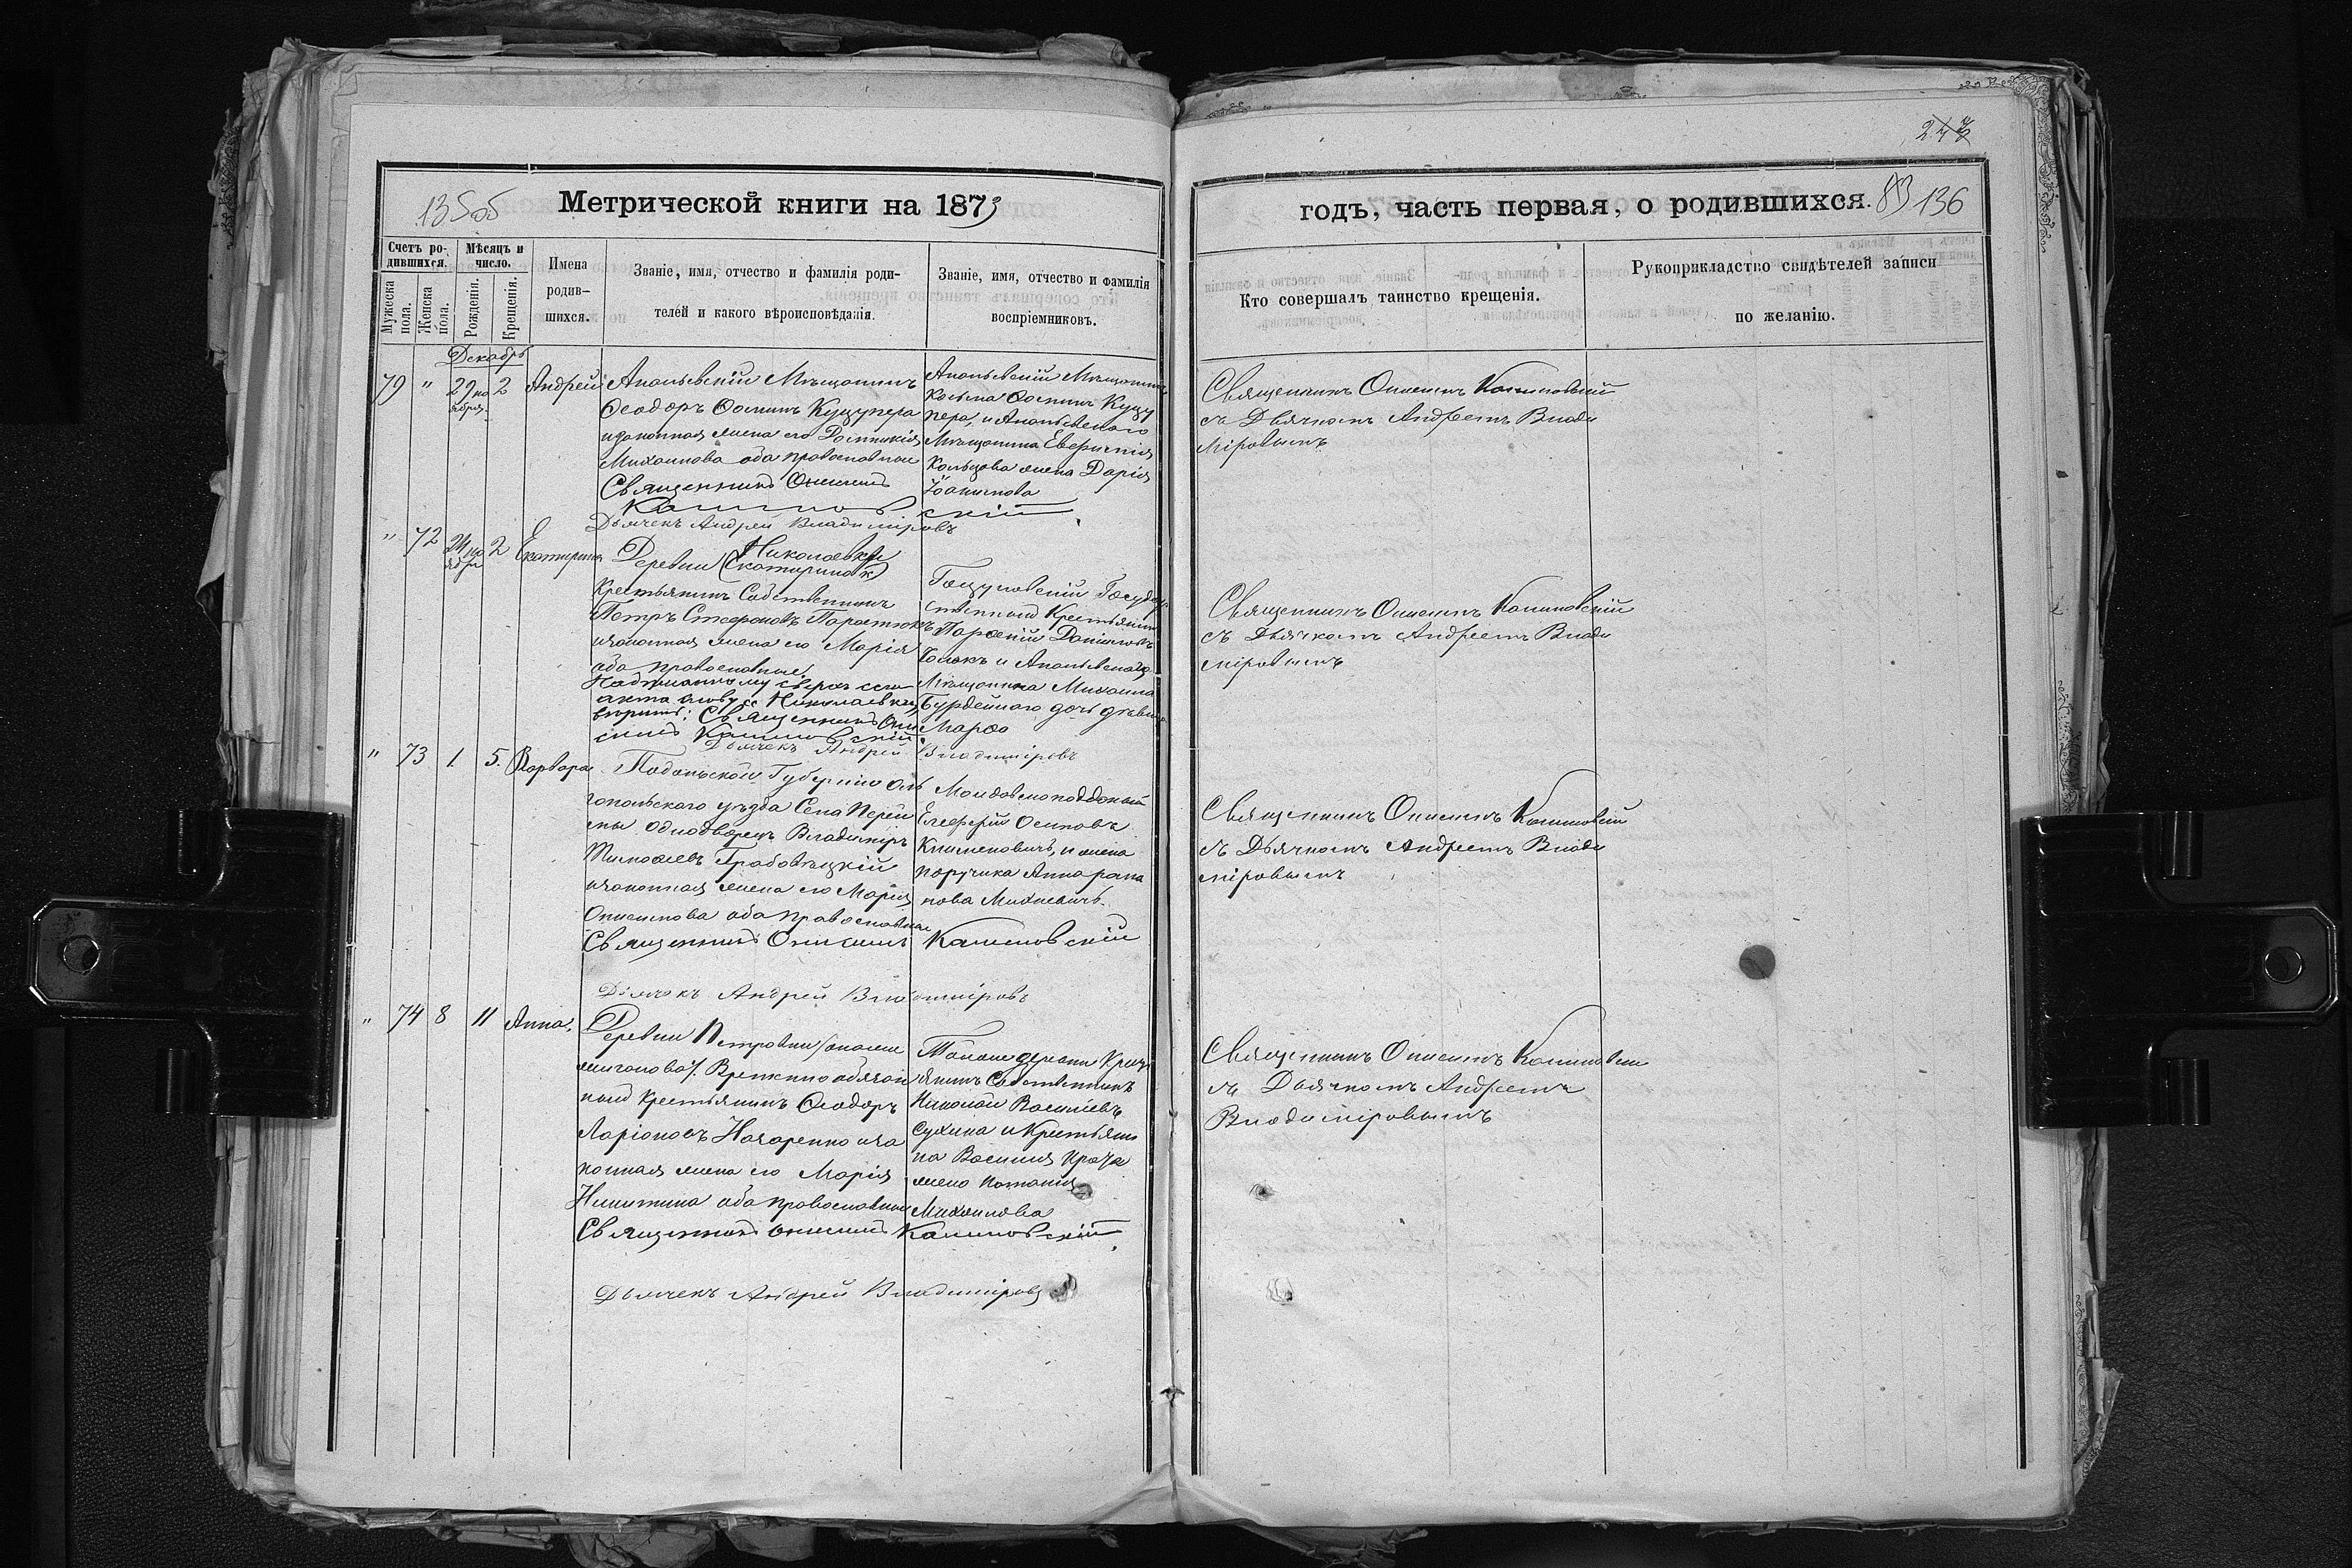 243
135об
Метрической книги на 1873
годъ, часть первая, о родившихся.
83 136
Счетъ ро-
дившихся.
Мужеска
пола.
Женска
пола.
Мѣсяцъ и
число.
Рожденія.
Крещенія.
Имена
родив-
шихся.
Званіе, имя, отчество и фамилія роди-
телей и какого вѣроисповѣданія.
Званіе, имя, отчество и фамилія
воспріемниковъ.
Кто совершалъ таинство крещенія.
Рукоприкладство свидѣтелей записи
по желанію.
Декабрь
79 " 29 но
ября. 2 Андрей
Ананьевскій Мѣщанинъ
Ѳеодоръ Ѳоминъ Куцупера
и законная жена его Домникія
Михаилова оба православные
Священникъ Онисимъ
Калиновскій
Дьячекъ Андрей Владиміровъ
Ананьевскій Мѣщанинъ
Косьма Ѳоминъ Куцу
пера, и Ананьевского
Мѣщанина Евфимія
Кольцова жена Дарія
Іоаннова
Священникъ Онисимъ Калиновскій
съ Дьячкомъ Андреемъ Влади
міровымъ
" 72 24 но
ября 2 Екатерина
Николаевки
Деревни (Скатеринок)
Крестьянинъ Собственникъ
Петръ Стефановъ
и законная жена его Марія
оба православные.
Надписанному сверхъ сего
акта слову: Николаевки,
вѣрить: Священникъ Они
симъ Калиновскій
Дьячекъ Андрей Владиміровъ
Государ
ственный Крестьянинъ
Парѳеній Даніиловъ
и Ананьевскаго
Мѣщанина Михаила
дочь дѣвица
Марѳа
Священникъ Онисимъ Калиновскій
съ Дьячкомъ Андреемъ Влади
міровымъ
" 73 1. 5. Варвара
Подольской Губерніи Оль
гопольского уѣзда Села Перей
мы однодворецъ Владиміръ
Тимоѳеевъ Грабовецкій
и законная жена его Марія
Онисимова оба православные
Священникъ Онисимъ Калиновскій
Дьячекъ Андрей Владиміровъ
Молдавскоподданый
Елефѳерій Осиповъ
Клименовичъ, и жена
поручика Анна
Михневичъ.
Священникъ Онисимъ Калиновскій
съ Дьячкомъ Андреемъ Влади
міровымъ
" 74 8 11 Анна.
Деревни Петровки
Временно обязан
ный Крестьянинъ Ѳеодоръ
Ларіоновъ Назаренко и за
конная жена его Марія
Никитина оба православные
Священникъ Онисимъ Калиновскій.
Дьячекъ Андрей Владиміровъ
Той же деревни Крестьянинъ Собственникъ
Николай Васильевъ
Сухина и Крестьяни
на Василія
жена Наталія
Михаилова
Священникъ Онисимъ Калиновскій
съ Дьячкомъ Андреемъ
Владиміровымъ